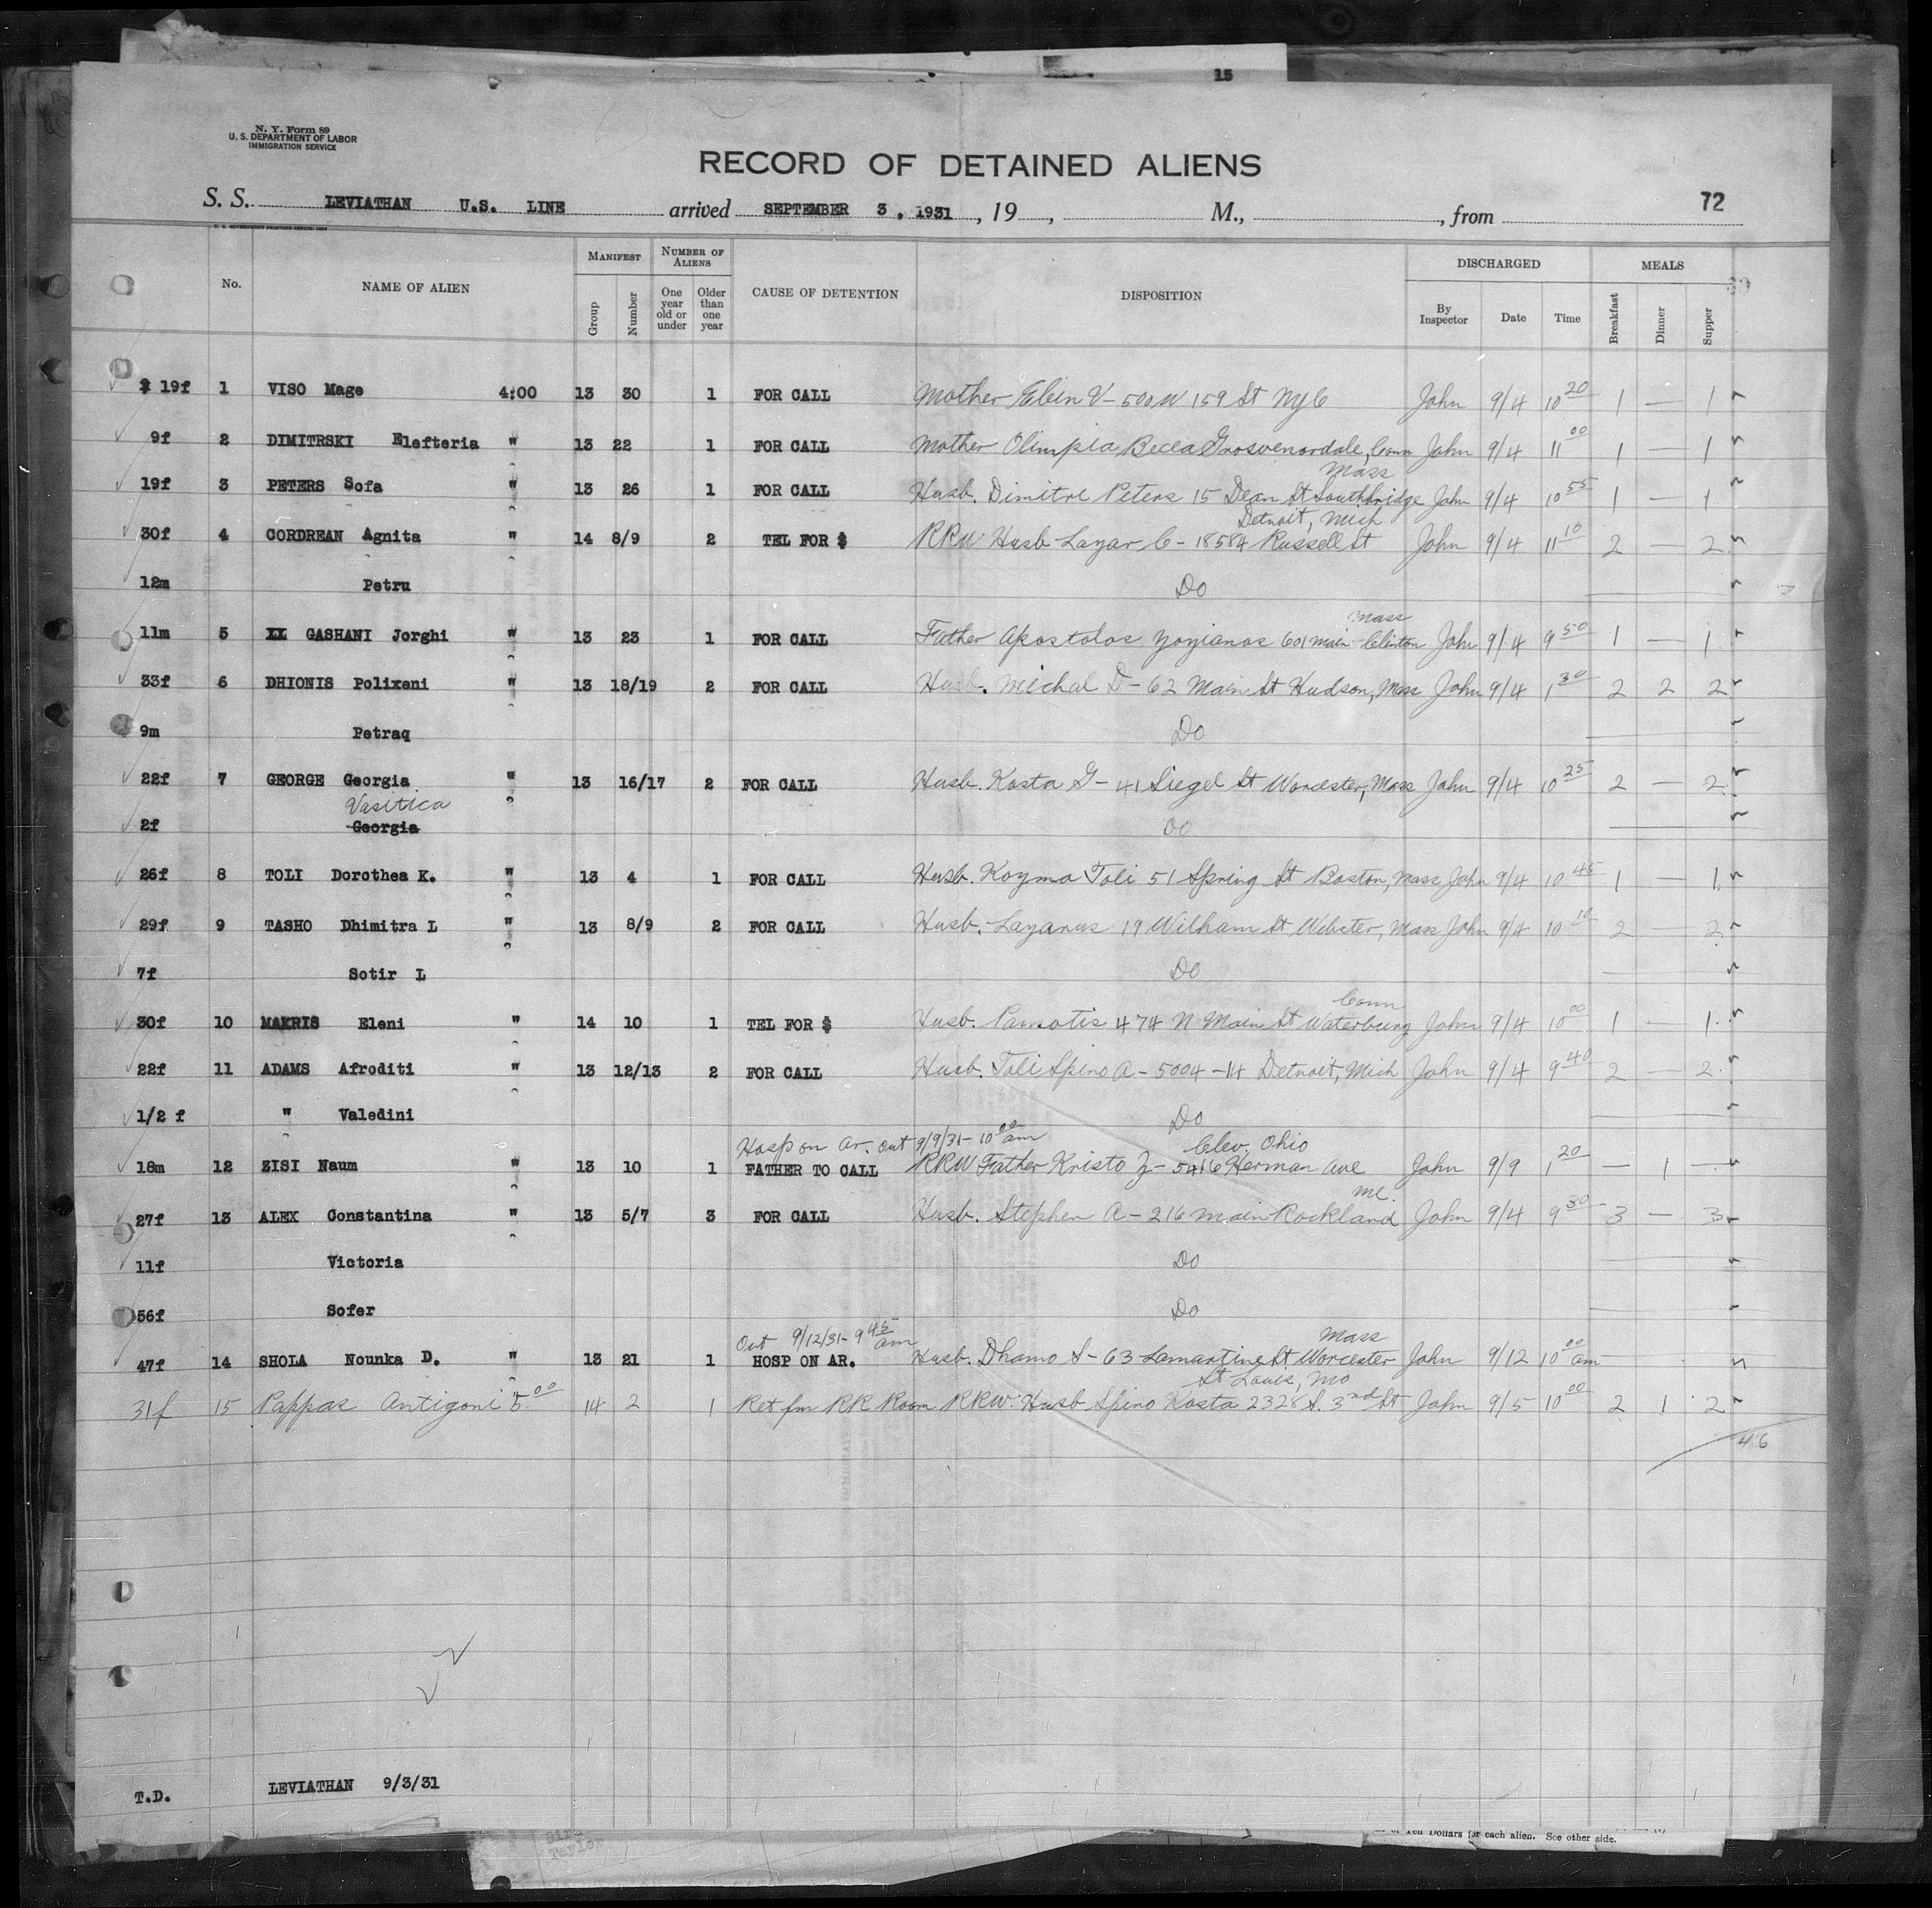 15
N. Y. Form 89
U. S. DEPARTMENT OF LABOR
IMMIGRATION SERVICE
RECORD OF DETAINED ALIENS
72
S. S. LEVIATHAN U.S. LINE arrived SEPTEMBER 3, 1931, 19 , M., , from
No. NAME OF ALIEN MANIFEST Group Number NUMBER OF ALIENS One year old or under Older than one year CAUSE OF DETENTION DISPOSITION DISCHARGED By Inspector Date Time MEALS Breakfast Dinner Supper
19f 1 VISO Mage 4:00 13 30 1 FOR CALL Mother Elein V - 500 W 159 St NYC John 9/4 10 20 1 — 1
9f 2 DIMITRSKI Elefteria " 13 22 1 FOR CALL Mother Olimpia Becea Grosvenordale, Conn John 9/4 11 00 1 — 1
Mass
19f 3 PETERS Sofa " 13 26 1 FOR CALL Husb. Dimitre Peters 15 Dean St Southbridge John 9/4 10 55 1 — 1
Detroit, Mich
30f 4 CORDREAN Agnita " 14 8/9 2 TEL FOR $ RRW Husb Lazar C - 18584 Russell St John 9/4 11 10 2 — 2
12m Petru Do
Mass
11m 5 XX GASHANI Jorghi " 13 23 1 FOR CALL Father Apostolos 601 Main Clinton John 9/4 9 50 1 — 1
33f 6 DHIONIS Polixeni " 13 18/19 2 FOR CALL Husb. Michal D - 62 Main St Hudson, Mass John 9/4 1 30 2 2 2
9m Petraq Do
22f 7 GEORGE Georgia " 13 16/17 2 FOR CALL Husb. Kosta G - 41 Siegel St Worcester, Mass John 9/4 10 25 2 — 2
Vasitica
2f Georgia Do
26f 8 TOLI Dorothea K. " 13 4 1 FOR CALL Husb. Kozma Toli 51 Spring St Boston, Mass John 9/4 10 45 1 — 1
29f 9 TASHO Dhimitra L " 13 8/9 2 FOR CALL Husb. Lazarus 19 William St Webster, Mass John 9/4 10 10 2 — 2
7f Sotir L Do
Conn
30f 10 MAKRIS Eleni " 14 10 1 TEL FOR $ Husb. 474 N Main St Waterbury John 9/4 10 00 1 1
22f 11 ADAMS Afroditi " 13 12/13 2 FOR CALL Husb. Toli Spiro A - 5004 - 14 Detroit, Mich John 9/4 9 40 2 — 2
1/2 f " Valedini Do
Hosp on Ar. Out 9/9/31 - 10 00 am Clev. Ohio
18m 12 ZISI Naum " 13 10 1 FATHER TO CALL RRW Father Kristo Z - 5416 Herman Ave John 9/9 1 20 — 1 —
Me.
27f 13 ALEX Constantina " 13 5/7 3 FOR CALL Husb. Stephen A - 216 Main Rockland John 9/4 9 30 3 — 3
11f Victoria Do
56f Sofer Do
Out 9/12/31 - 9 45 am Mass
47f 14 SHOLA Nounka D. " 13 21 1 HOSP ON AR. Husb. Dhamo S - 63 Lamartine St Worcester John 9/12 10 00 am
St Louis, Mo
31f 15 Pappas Antigoni 5 00 14 2 1 Ret fm RR Room RRW Husb Spiro Kosta 2328 S. 3rd St John 9/5 10 00 2 1 2
46
T.D. LEVIATHAN 9/3/31
of Ten Dollars for each alien. See other side.